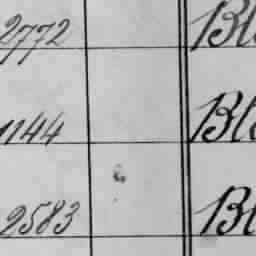 2772 Bl
1144 Bl
2583 Bl